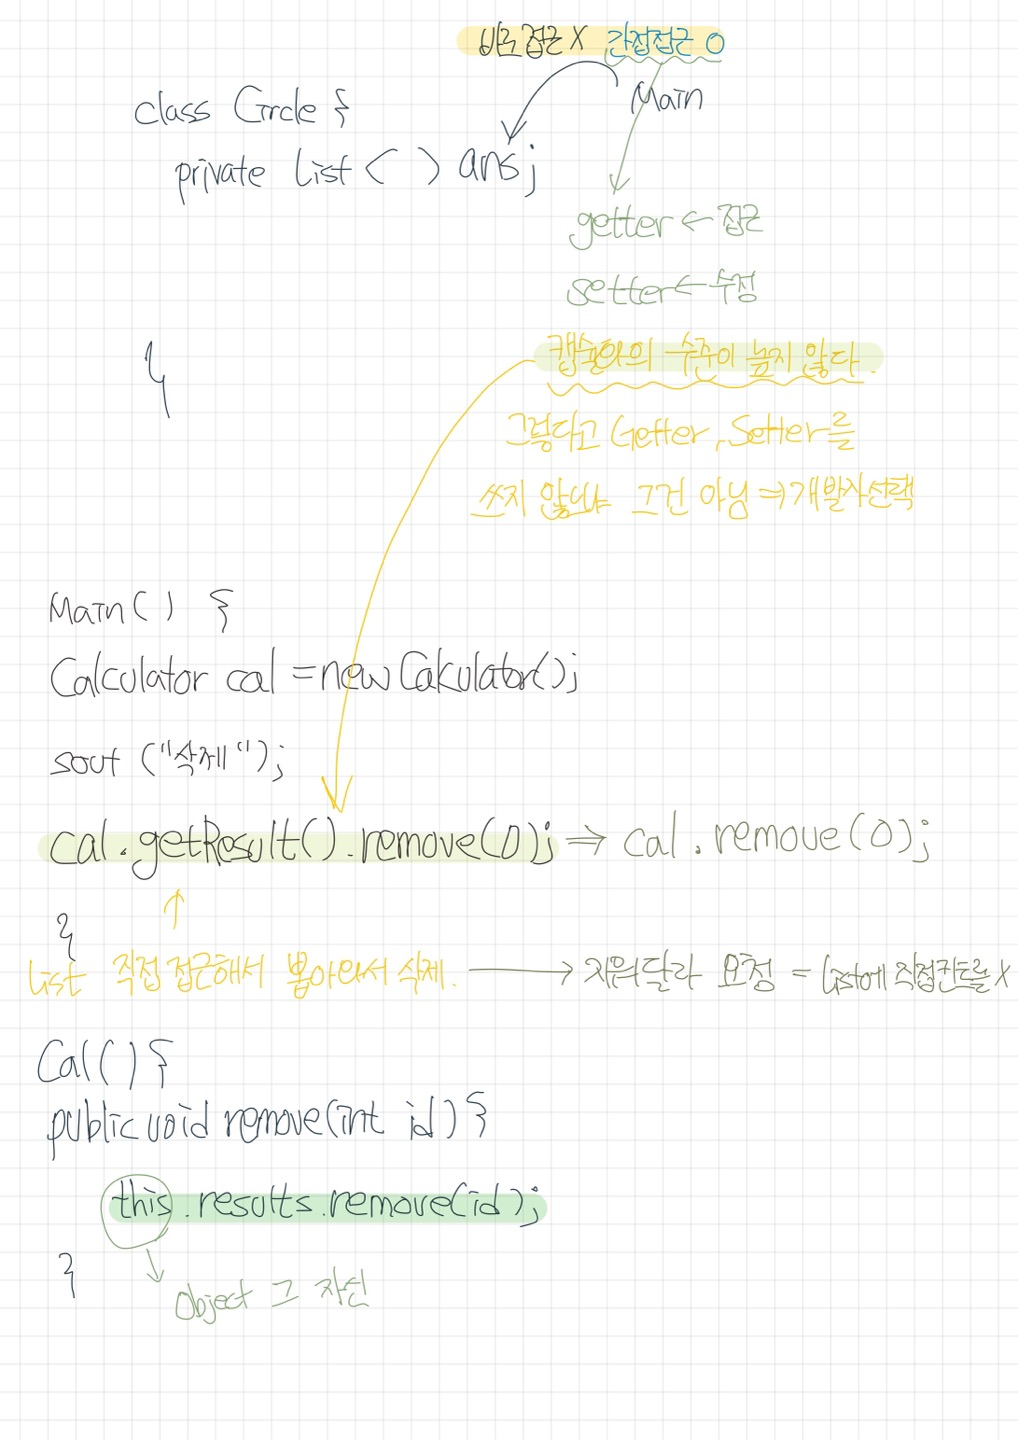 바로 접근 X 간접접근 O
Main
class Circle {
private list < > ans;
getter ← 접근
setter ← 수정
}
캡슐화의 수준이 높지 않다.
그렇다고 Getter, Setter를
쓰지 않느냐 그건 아님 ⇒ 개발자선택
Main() {
Calculator cal = new Calculator();
sout ("삭제");
cal.getResult().remove(0); ⇒ cal.remove(0);
}
list 직접 접근해서 뽑아와서 삭제. → 지워달라 요청 = list에 직접컨트롤 X
Cal() {
public void remove(int id) {
this.results.remove(id);
}
object 그 자신